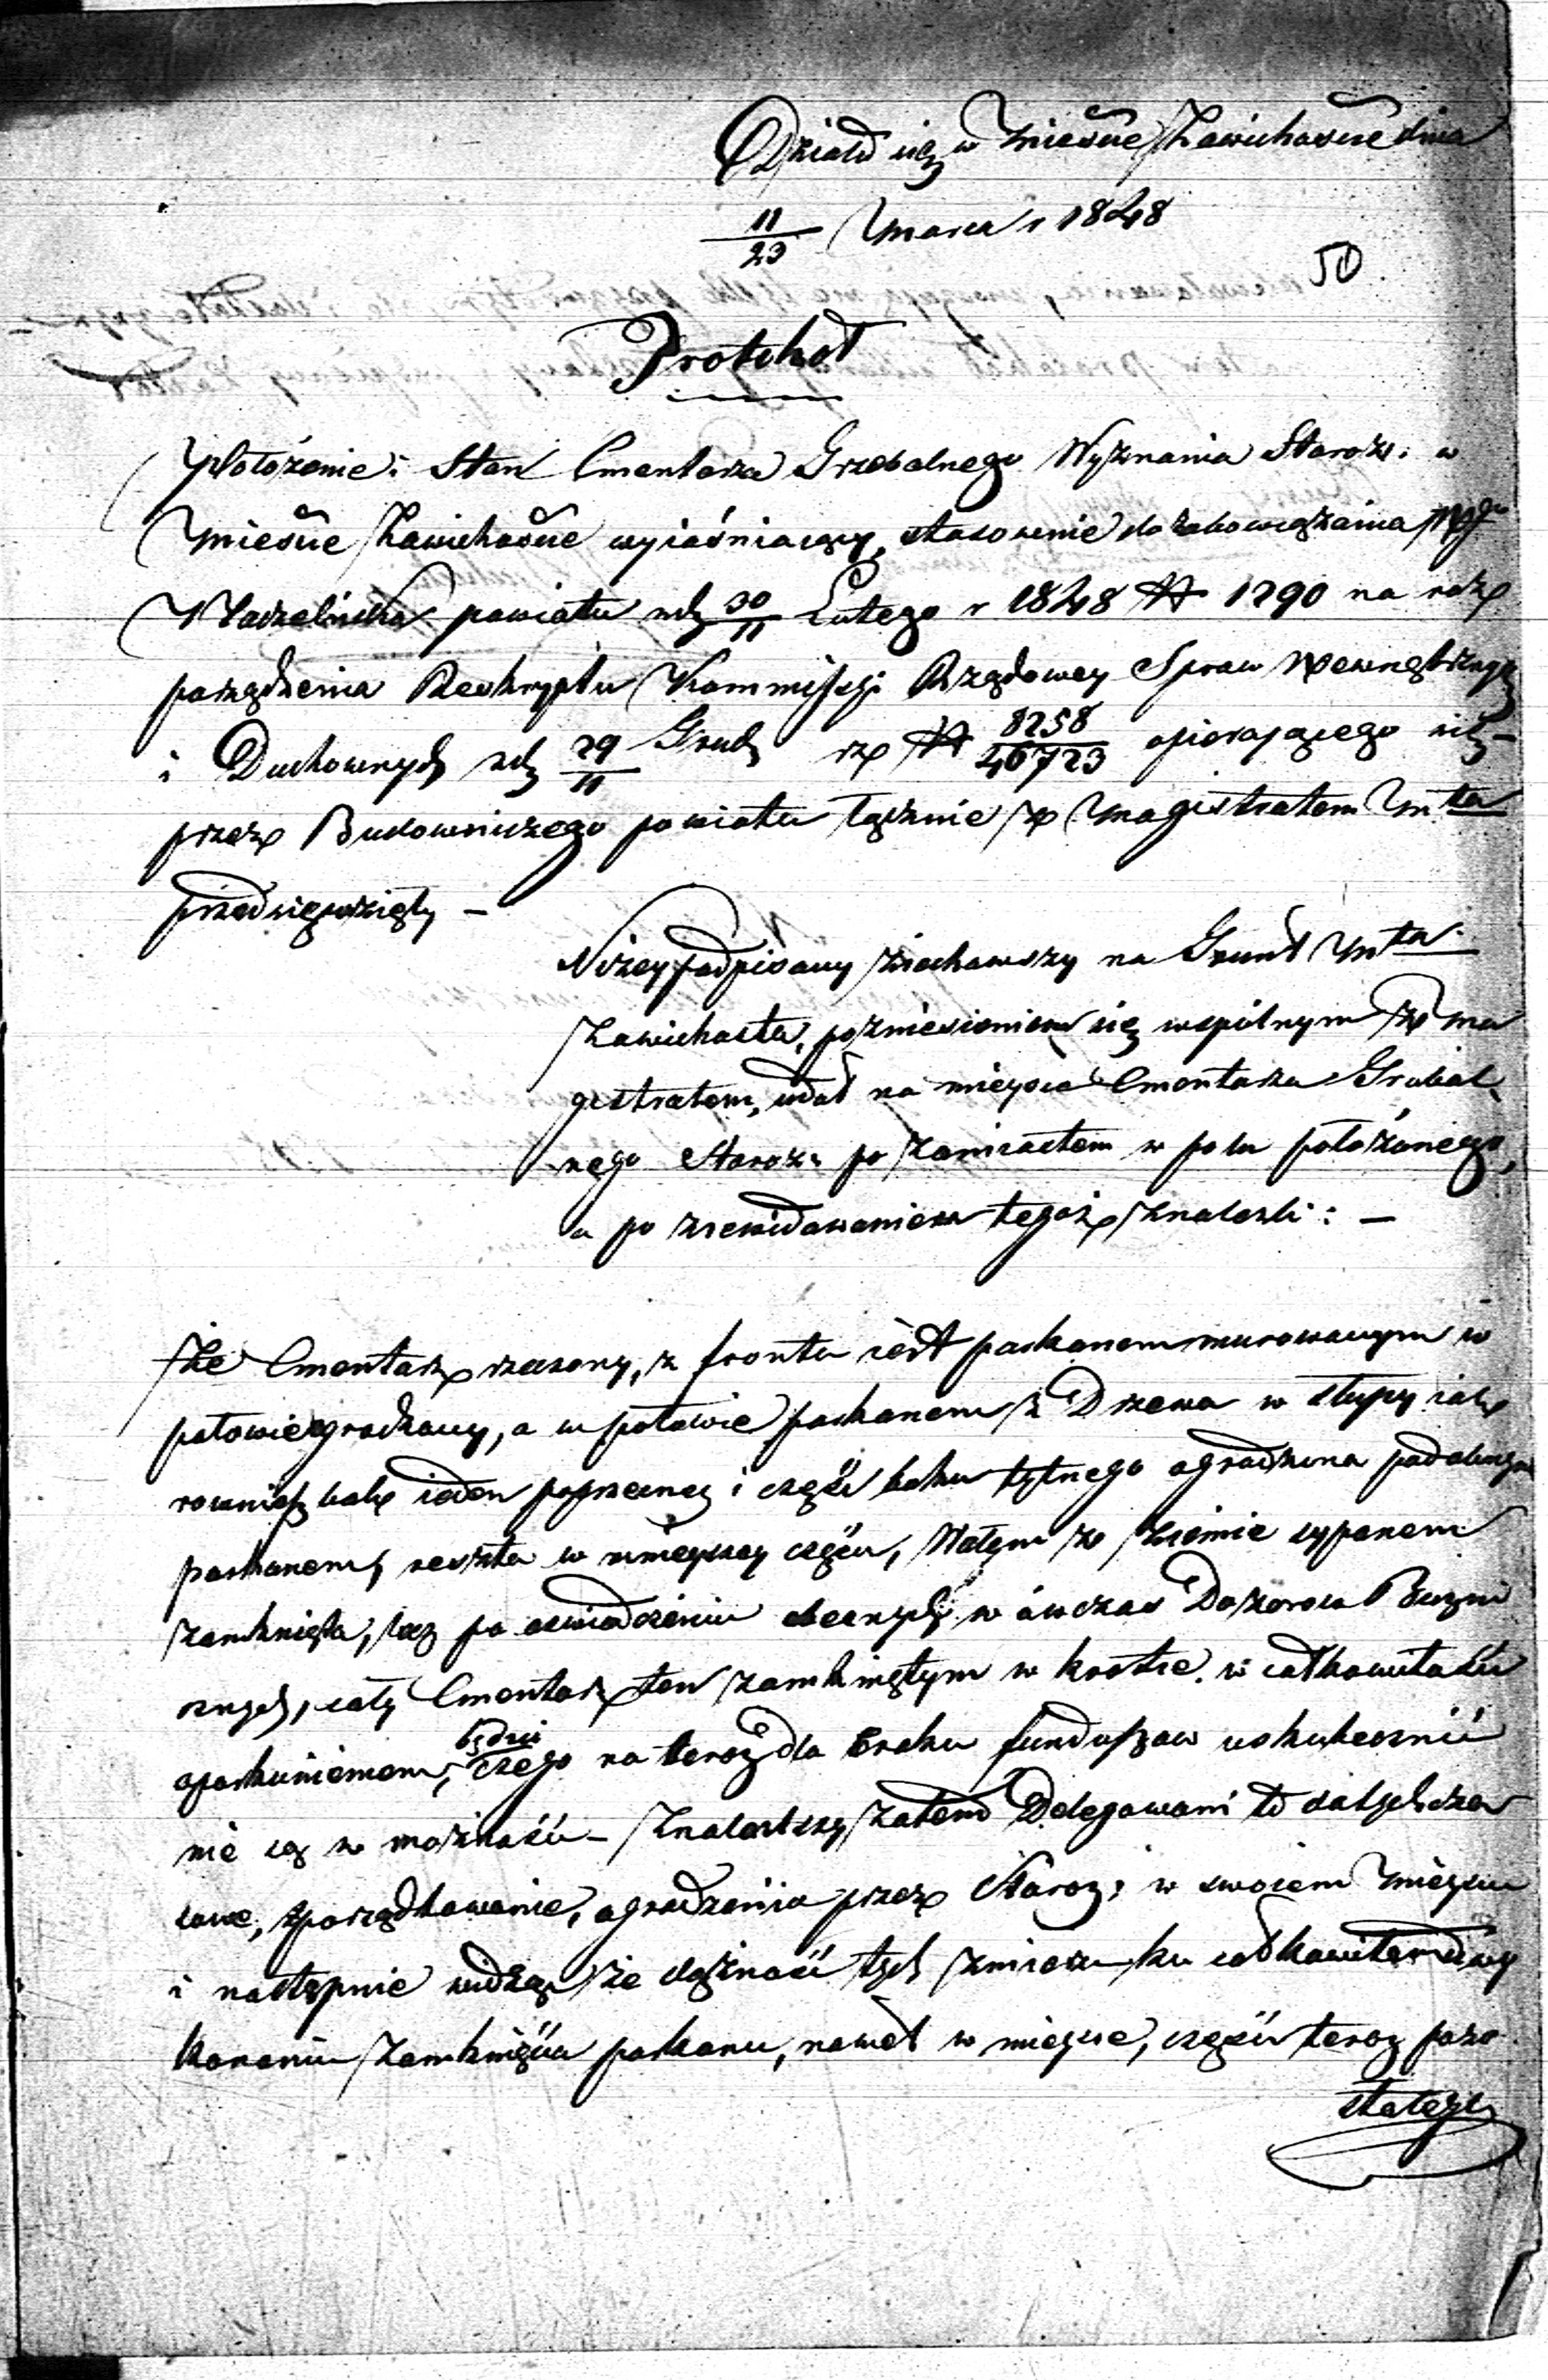 Działo się w Mieście Zawichoście dnia
11/23 Marca r 1848
50
Protokoł
Położenie i Stan Cmentarza Grzebalnego Wyznania Staroz: w
Mieście Zawichoście wyiaśniaiący, stosownie do zobowiązania
Naczelnika powiatu Lutego r 1848 N 1290 na roz
porządzenia Reskryptu Kommissyi Rządowey Spraw Wewnętrznych
i Duchownych 29/11 Grud rz N 8258/46723 opieraiącego się
przez Budowniczego powiatu łącznie z Magistratem Mta
przedsięwzięty –
Niżey podpisany ziechawszy na Grunt Mta
Zawichosta, po zniesieniem się wspólnym z Ma
gistratem, udał na mieysce Cmentarza Grubal
nego Staroz: po Zamiastem w polu położonego,
a po zrewidowaniem tegoż znalezli: –
Że Cmentarz rzeczony, z frontu iest parkanem murowanym w
połowie ogrodzony, a w połowie parkanem z Drzewa w słupy iak
rownież bok ieden poprzeczney i część boku tylnego ogrodzona podobnym
parkanem, reszta w mnieyszey części, Wałem z Ziemie sypanem
zamknięta, lecz po oswiadczeniu obecnych w ówczas Dozorców Bużni
cznych, cały Cmentarz ten zamkniętym w krotce w całkowitości
oparkaniemem, będzie czego na teraz dla braku funduszow uskutecznić
nie są w możności – Znalazłszy zatem Delegowani to dotychcza
sowe, zporządkowanie, ogrodzenia przez Staroz: w swoiem Mieyscu
i następnie widząc że dążność tych zmierza ku całkowitemu wy
konaniu zamknięcia parkanu, nawet w mieysce, części teraz pozo
stałych